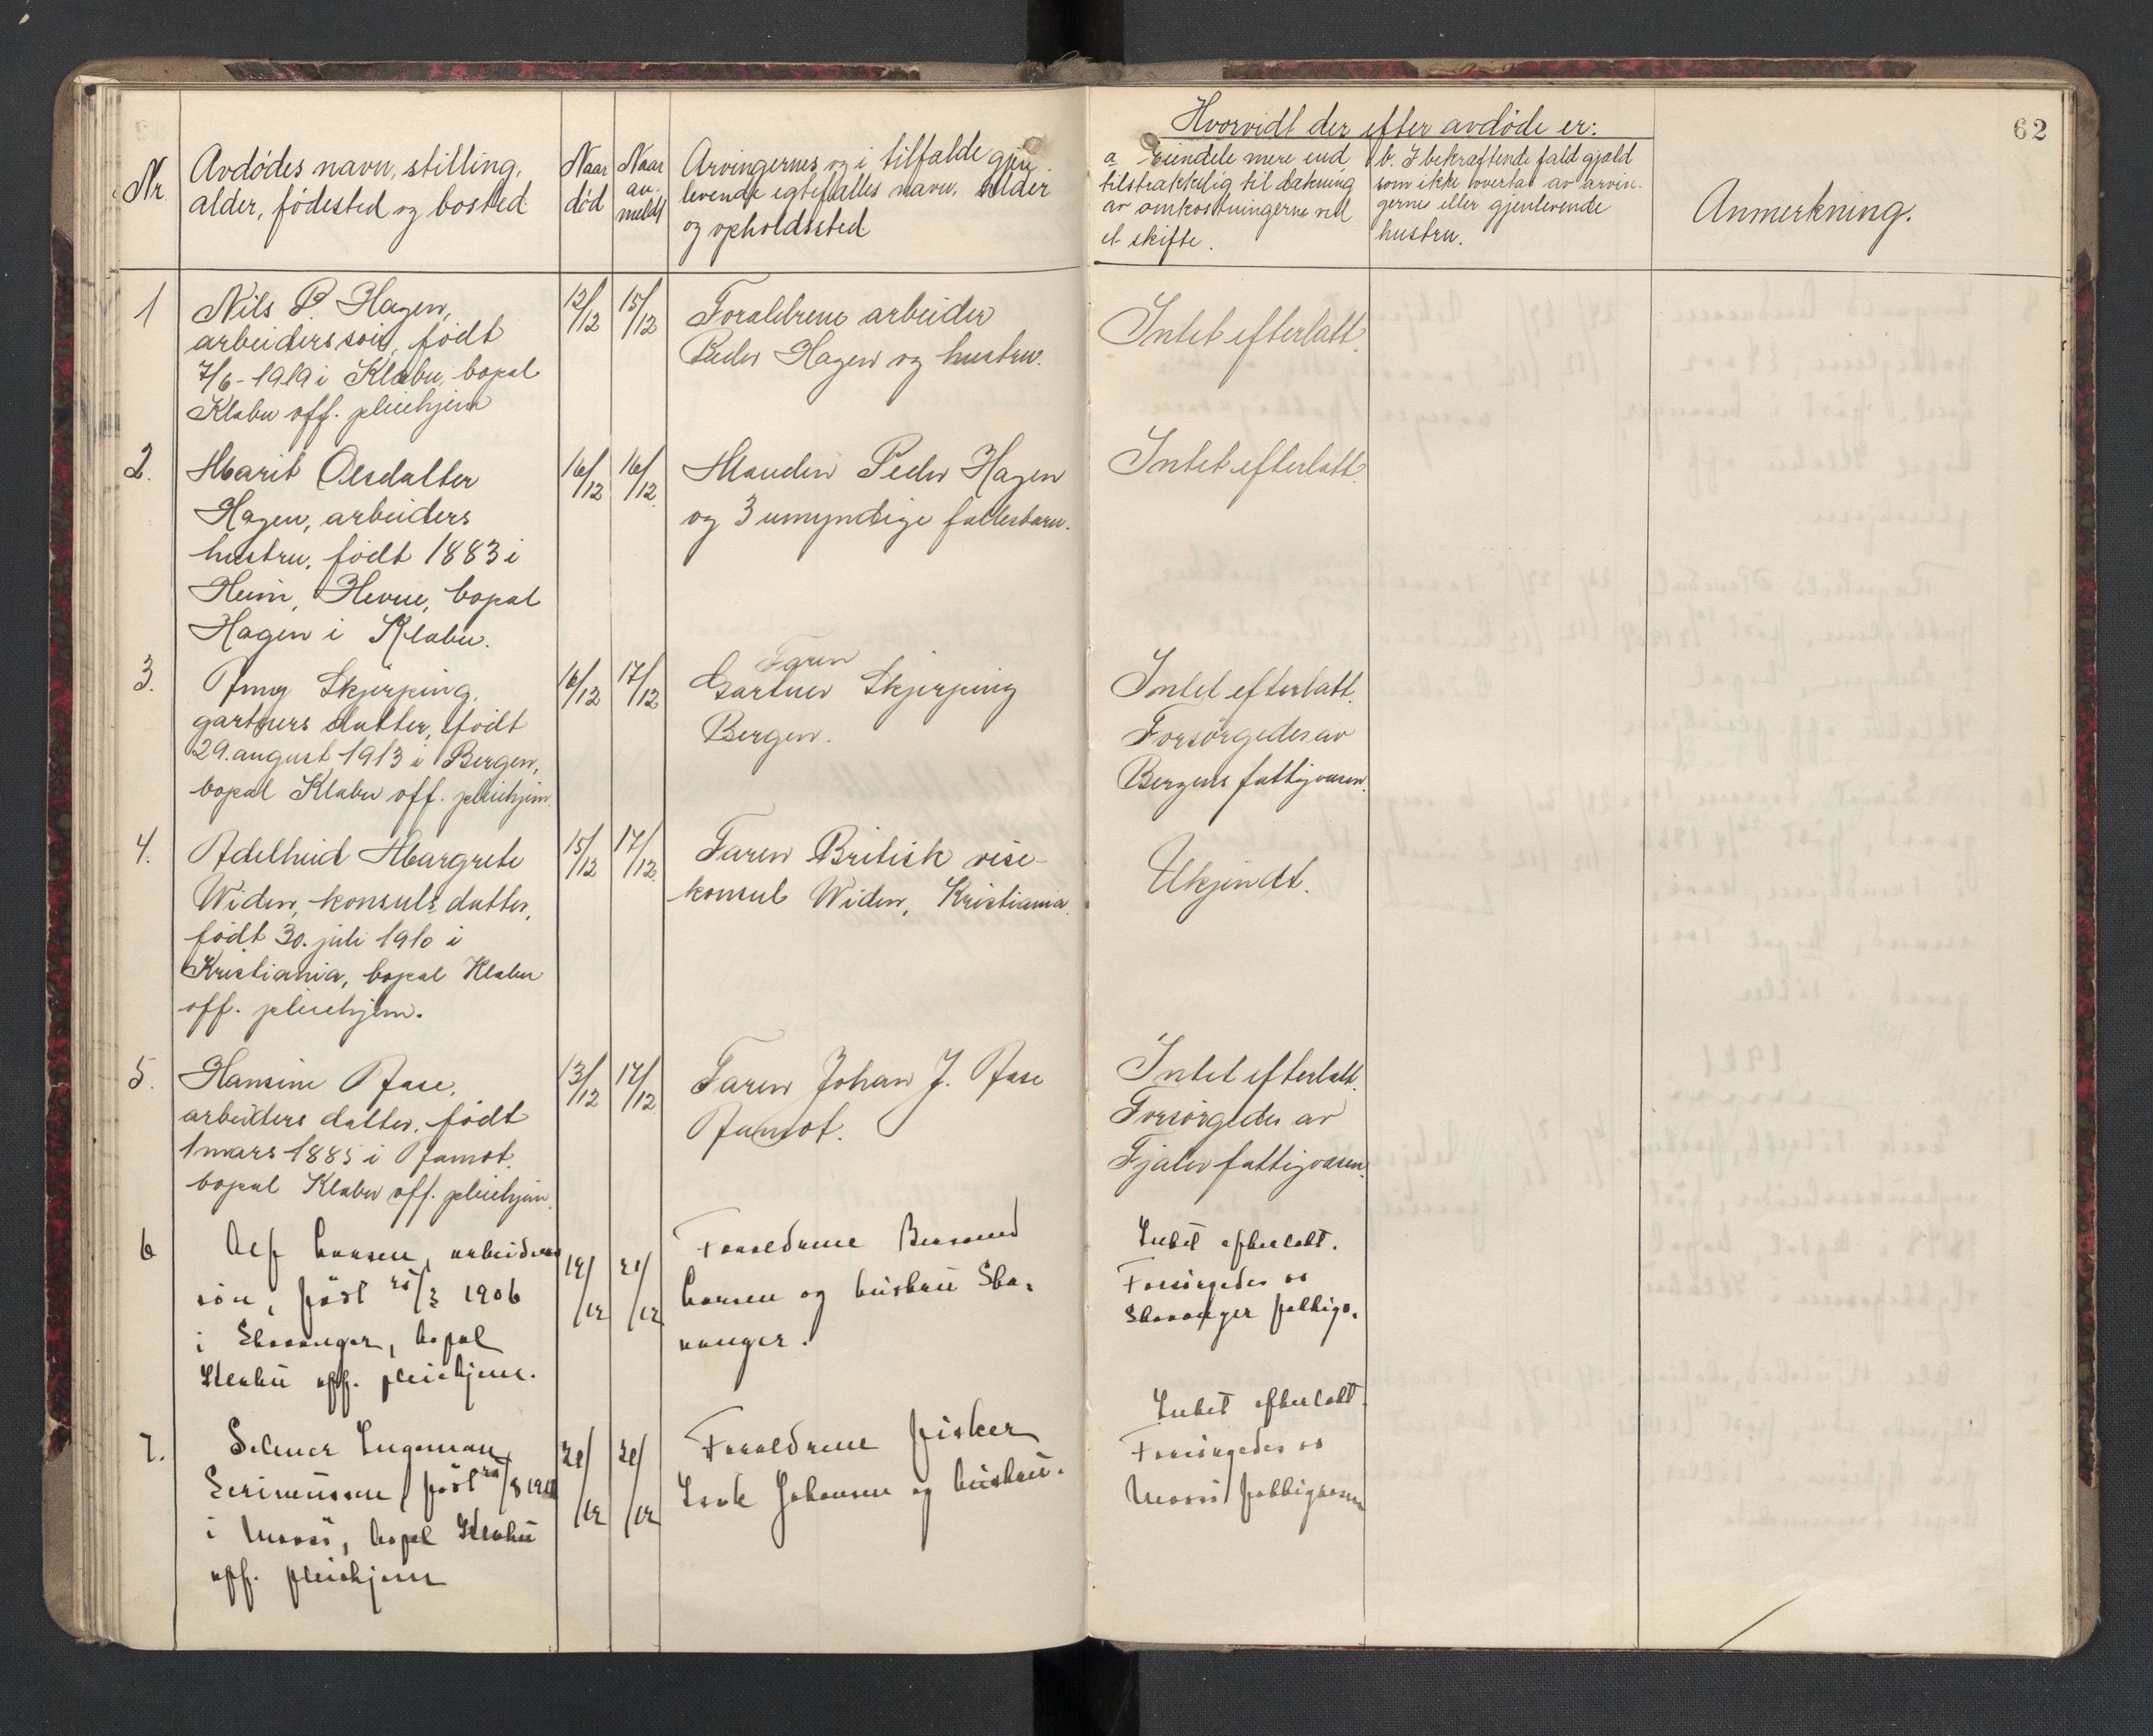 62
Hvorvidt der efter avdöde er:
Nr.
Avdödes navn, stilling,
alder, födested og bosted
Naar
död
Naar
an-
meldt
Arvingernes og i tilfælde gjen-
levende egtefælles navn, alder
og opholdssted
a. Eiendele mere end
tilstrækkelig til dækning
av omkostningerne ved
et skifte.
b. I bekræftende fald gjæld
som ikke overtas av arvin-
gerne eller gjenlevende
hustru.
Anmerkning.
1
Nils P. Hagen,
arbeiders sön, födt
7/6-1919 i Klæbu, bopæl
Klæbu off. pleiehjem
12/12
15/12
Forældrene arbeider
Peder Hagen og hustru.
Intet efterlatt.
2.
Marit Olsdatter
Hagen, arbeiders
hustru, födt 1883 i
Heim, Hevne, bopæl
Hagen i Klæbu.
16/12
16/12
Manden Peder Hagen
og 3 umyndige fællesbarn.
Intet efterlatt.
3.
Amy Skjerping,
gartners datter, födt
29. august 1913 i Bergen,
bopæl Klæbu off. pleiehjem.
16/12
17/12
Faren
Gartner Skjerping
Bergen.
Intet efterlatt.
Forsörgedes av
Bergens fattigvæsen.
4.
Adelheid Margrete
Widen, konsuls datter,
födt 30. juli 1910 i
Kristiania, bopæl Klæbu
off. pleiehjem.
15/12
17/12
Faren Britisk vise-
konsul Widen, Kristiania.
Ukjendt.
5.
Hansine Aase,
arbeiders datter, födt
1 mars 1885 i Aamot.
bopæl Klæbu off. pleiehjem.
13/12
17/12
Faren Johan J. Aase
Aamot.
Intet efterlatt.
Forsörgedes av
Fjaler fattigvæsen.
6
Alf Larsen, arbeiders
sön, född 1906
i Stavanger, bopæl
Klæbu off. pleiehjem.
19/12
21/12
Forældrene
Larsen og hustru Sta-
vanger.
Intet efterlatt.
Forsörgedes av
Stavanger fattigv.
7.
Selmer Ingeman
födt
i Moss, bopæl Klæbu
off. pleiehjem
21/12
21/12
Forældrene fisker
Isak Johansen og hustru.
Intet efterlatt.
Forsörgedes av
fattigvæsen